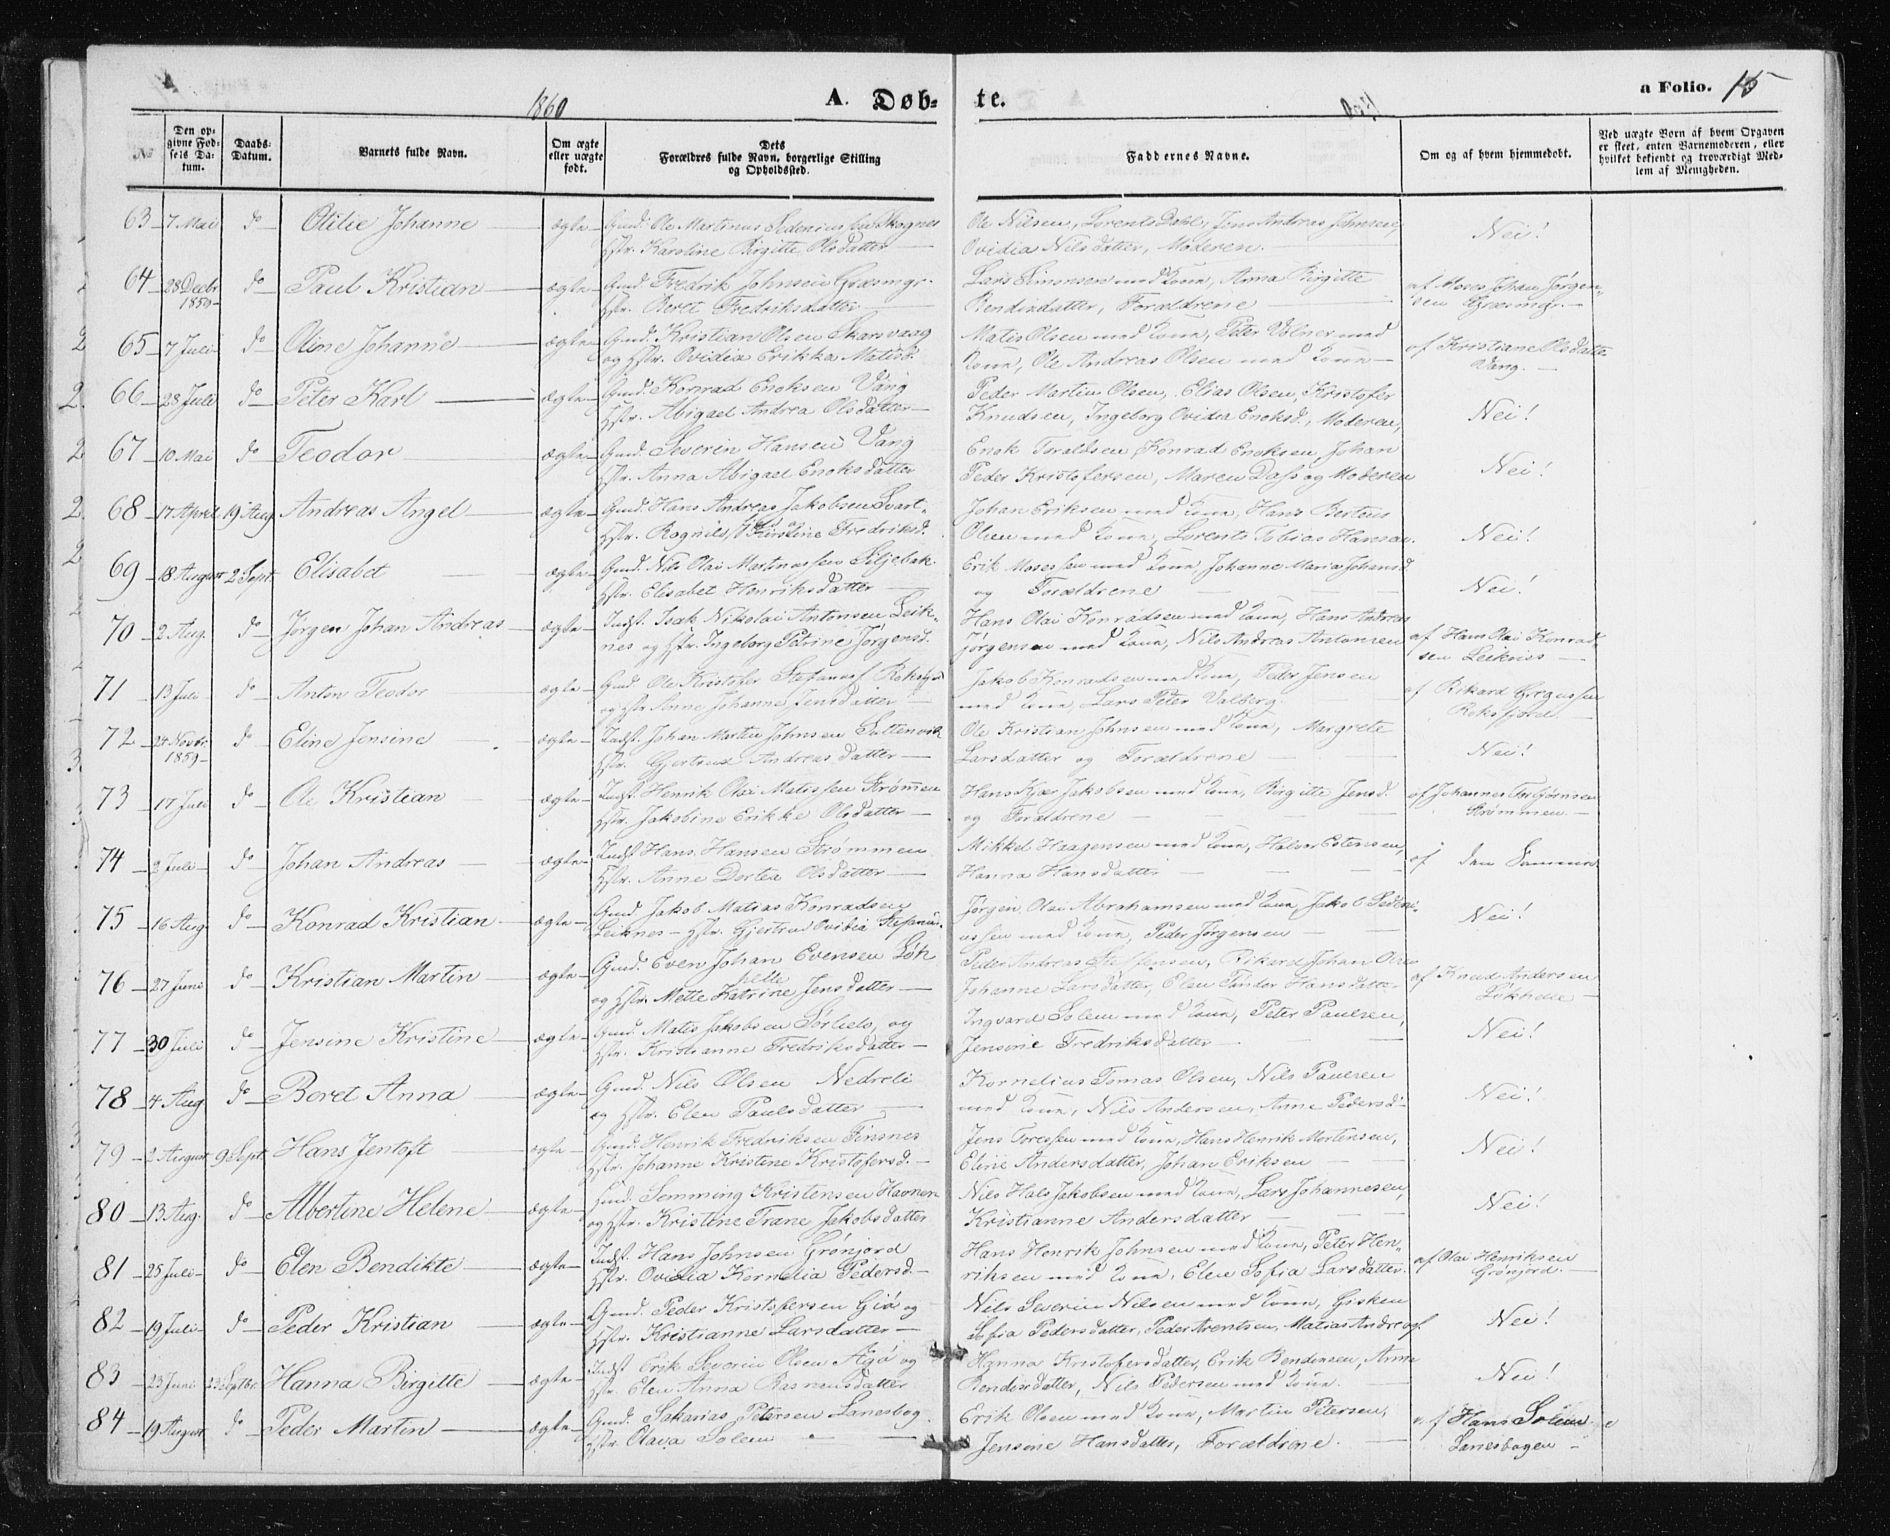 1860 A. Døb- te. a Folio. 15
No
Den op-
givne Fød-
sels Da-
tum.
Daabs-
Datum.
Barnets fulde Navn.
Om ægte
eller uægte
født.
Dets
Forældres fulde Navn, borgerlige Stilling
og Opholdssted.
Faddernes Navne.
Om og af hvem hjemmedøbt.
Ved uægte Børn af hvem Opgaven
er skeet, enten Barnemoderen, eller
hvilket bekjendt og troværdigt Med-
lem af Menigheden.
63 7 Mai do Otilie Johanne ægte Gmd. Ole Martinus Sedeniussen Skognes Ole Nilsen, Lorents Dahl, Jens Andreas Johnsen, Nei!
Hstr. Karoline Birgitte Olsdatter Ovidia Nilsdatter, Moderen.
64 28 Decbr 1859 do Paul Kristian ægte Gmd. Fredrik Johnsen Græsmyr Lars Simonsen med Kone, Anna Birgitte af Moses Johan Jørgen-
Hstr. Beret Fredriksdatter Bendixdatter, Forældrene sen Græsmyr.
65 7 Juli do Oline Johanne ægte Gmd. Kristian Olsen Skarsvaag Matis Olsen med Kone, Peter Volner med af Kristiane Olsdatter
og Hstr. Ovidia Erikka Matisd. Kone, Ole Andreas Olsen med Kone Vang.
66 28 Juli do Peter Karl ægte Gmd. Konrad Enoksen Vang Peder Martin Olsen, Elias Olsen, Kristofer Nei!
Hstr. Abigael Andrea Olsdatter Knudsen, Ingeborg Ovidia Enoksd., Moderen,
67 10 Mai do Teodor ægte Gmd. Severin Hansen Vang Enok Toraldsen, Konrad Enoksen, Johan Nei!
Hstr. Anna Abigael Enoksdatter Peder Kristofersen, Maren Dass og Moderen
68 17 April 19 Aug Andreas Angel ægte Gmd. Hans Andreas Jakobsen Svart- Johan Eriksen med Kone, Hans Berteus Nei!
Hstr. Rognild Karoline Fredriksd. Olsen med Kone, Lorents Tobias Hansen.
69 18 August 2 Sept. Elisabet ægte Gmd. Nils Olai Martinussen Siljebak. Erik Mosessen med Kone, Johanne Maria Johansd Nei!
Hstr. Elisabet Henriksdatter og Forældrene
70 2 Aug. do Jørgen Johan Andreas ægte Indst. Isak Nikolai Antonsen Leik- Hans Olai Konradsen med Kone, Hans Andreas af Hans Olai Konrad-
nes og Hstr. Ingeborg Petrine Jørgensd. Jørgensen med Kone, Nils Andreas Antonsen sen Leiknes
71 13 Juli do Anton Teodor ægte Gmd. Ole Kristofer Stefanus. Reksfjord Jakob Konradsen med Kone, Peder Jensen af Rikard Gregussen
og Hstr. Anne Johanne Jensdatter med Kone, Lars Peter Valberg. Reksfjord.
72 24 Novbr. 1859 do Eline Jensine ægte Indst. Johan Martin Johnsen Sultenvik Ole Kristian Johnsen med Kone, Margrete Nei!
Hstr. Gjertrud Andreasdatter Larsdatter og Forældrene
73 17 Juli do Ole Kristian ægte Indst. Henrik Olai Matissen Strømmen Hans Kjær Jakobsen med Kone, Birgitte Jensd. af Johannes Torbjørnsen
Hstr. Jakobine Erikke Olsdatter og Forældrene Strømmen.
74 2 Juli do Johan Andreas ægte Indst. Hans Hansen Strømmen Mikkel Haagensen med Kone, Halvor Estensen, af den Samme
Hstr. Anne Dortea Olsdatter Hanna Hansdatter
75 16 Aug do Konrad Kristian ægte Gmd. Jakob Matias Konradsen Jørgen Olai Abrahamsen med Kone, Jakob Sedeni- Nei!
Leiknes Hstr. Gjertrud Ovidia Stefanusd. ussen med Kone, Peder Jørgensen
76 27 Juni do Kristian Martin ægte Gmd. Even Johan Evensen Løk- Peder Andreas Steffensen, Rikard Johan Olsen af Knud Andersen
helle
og Hstr. Mette Katrine Jensdatter Johanne Larsdatter, Elen Tinder Hansdatter Løkhelle
77 30 Juli do Jensine Kristine ægte Gmd. Matis Jakobsen Sørliels, og Ingvard Solem med Kone, Peter Paulsen, Nei!
Hstr. Kristianne Fredriksdatter Jensine Fredriksdatter
78 4 Aug do Beret Anna ægte Gmd. Nils Olsen Nedreli Kornelius Tomas Olsen, Nils Paulsen Nei!
og Hstr. Elen Paulsdatter med Kone, Nils Andersen, Anne Pedersd.
79 2 August 9 Sept. Hans Jentoft ægte Gmd. Henrik Fredriksen Finsnes Jens Toressen med Kone, Hans Henrik Mortensen, Nei!
Hstr. Johanne Kristine Kristofersd. Eline Andersdatter, Johan Eriksen
80 13 Aug. do Albertine Helene ægte Gmd. Semming Kristensen Havnen Nils Hals Jakobsen med Kone, Lars Johannesen, Nei!
og Hstr. Kristine Trane Jakobsdatter Kristianne Andersdatter
81 25 Juli do Elen Bendikte ægte Indst. Hans Johnsen Grønjord Hans Henrik Johnsen med Kone, Peter Hen- af Olai Henriksen
Hstr. Ovidia Kornelia Pedersd. riksen med Kone, Elen Sofia Larsdatter. Grønjord.
82 19 Juli do Peder Kristian ægte Gmd. Peder Kristofersen Giø og Nils Severin Nilsen med Kone, Gisken Nei!
Hstr. Kristianne Larsdatter Sofia Pedersdatter, Peder Arentsen, Matias Andreas.
83 23 Juni 23 Septbr. Hanna Birgitte ægte Indst Erik Severin Olsen Agø og Hanna Kristofersdatter, Erik Bendixsen, Anne Nei!
Hstr. Elen Anna Rasmusdatter Bendixdatter, Nils Pedersen med Kone.
84 19 August do Peder Martin ægte Gmd. Sakarias Petersen Lanesbog. Erik Olsen med Kone, Martin Petersen, af Hans Solem
Hstr. Olava Solem Jensine Hansdatter, Forældrene. Lanesbogen